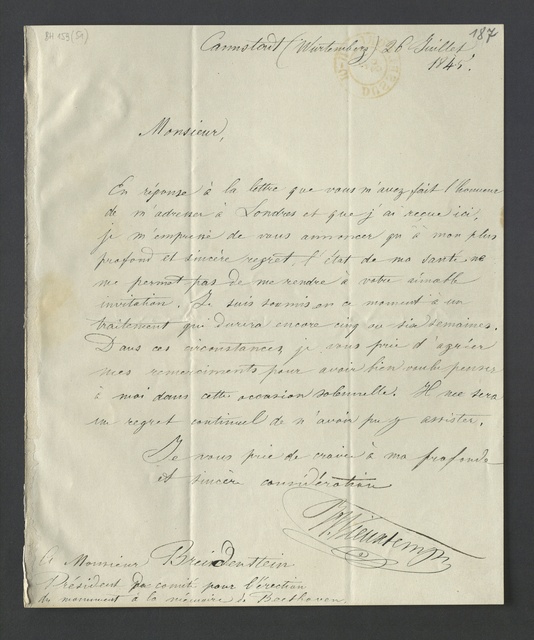 BH 153 (51)
187
Cannstadt (Würtemberg) 26 Juillet
1845.
Monsieur,
En réponse à la lettre que vous m'avez fait l'honneur
de m'adresser à Londres et que j'ai reçue ici,
je m'empresse de vous annoncer qu'à mon plus
profond et sincère regret l'état de ma santé ne
me permet pas de me rendre à votre aimable
invitation. Je suis soumis en ce moment à un
traitement qui durera encore cinq ou six semaines.
Dans ces circonstances je vous prie d'agréer
mes remerciments pour avoir bien voulu penser
à moi dans cette occasion solennelle. Il me sera
un regret continuel de n'avoir pu y assister.
Je vous prie de croire à ma profonde
et sincère considération
H. Vieuxtemps
A Monsieur Breidenstein
Président du comité pour l'érection
du monument à la mémoire de Beethoven